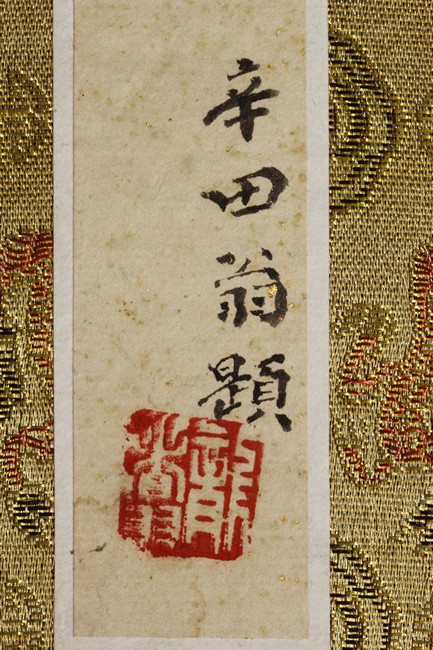 辛田翁題